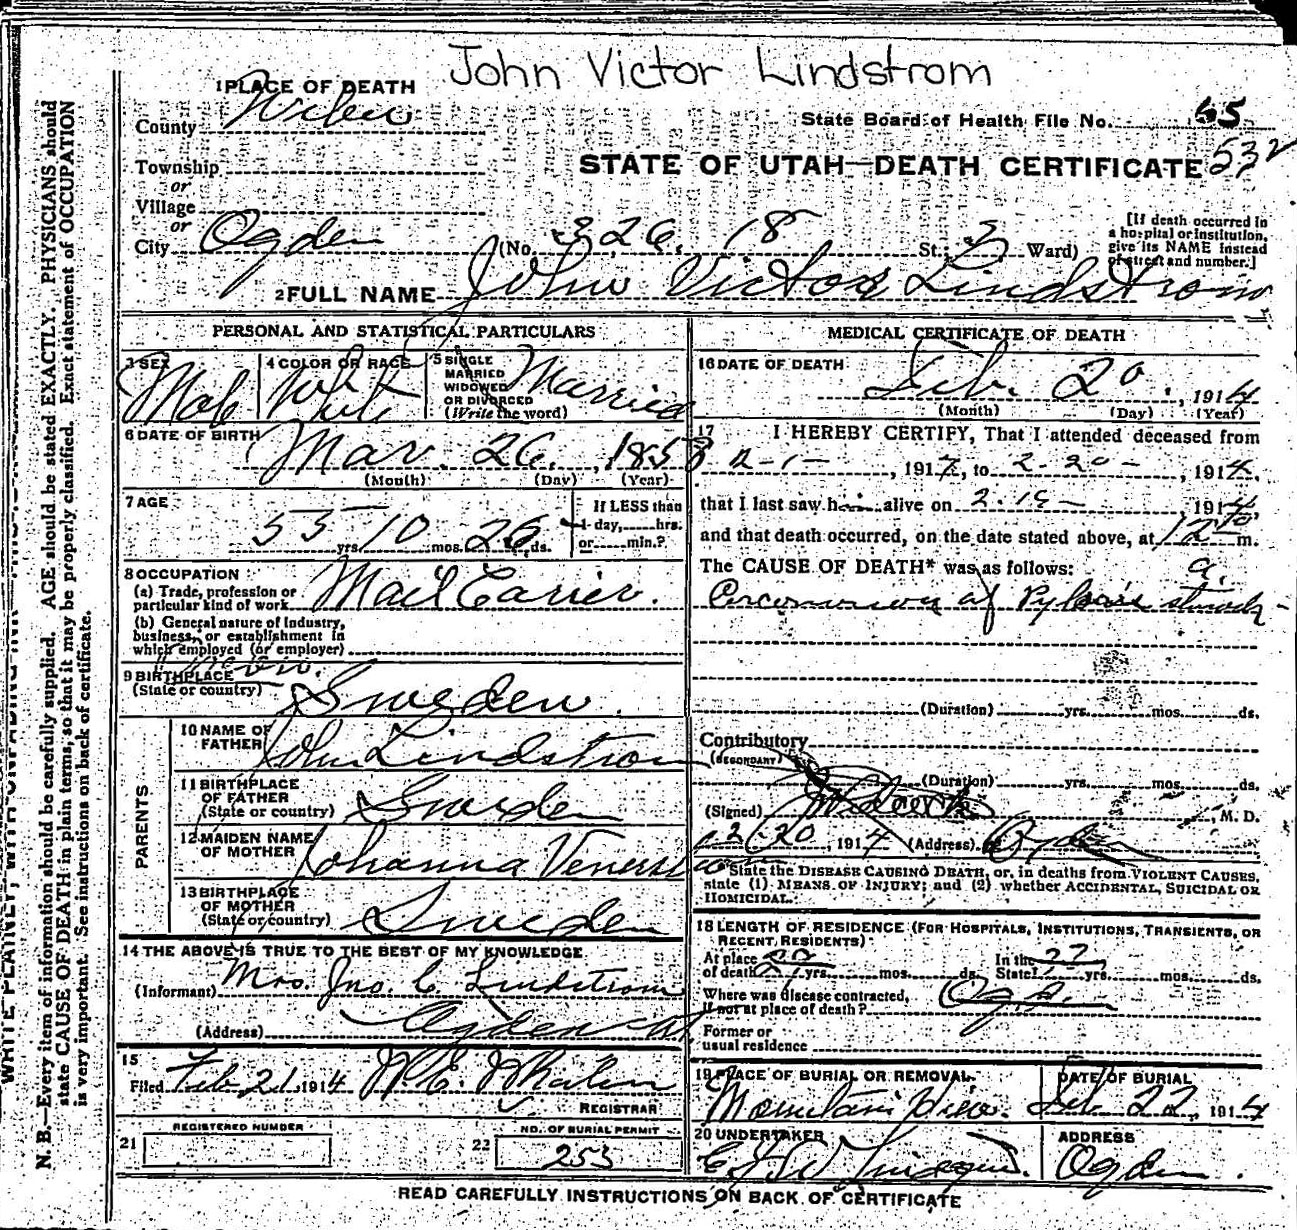 John Victor Lindstrom
1 PLACE OF DEATH
County Weber
State Board of Health File No. 65
Township
or
Village
or
STATE OF UTAH—DEATH CERTIFICATE 532
City Ogden (No. 326. 18 St; 3 Ward)
[If death occurred in a hospital or institution, give its NAME instead of street and number.]
2 FULL NAME John Victor Lindstrom
PERSONAL AND STATISTICAL PARTICULARS
3 SEX Male
4 COLOR OR RACE White
5 SINGLE MARRIED WIDOWED OR DIVORCED (Write the word) Married
6 DATE OF BIRTH Mar. 26, 1858
(Month) (Day) (Year)
7 AGE 55 yrs. 10 mos. 26 ds.
If LESS than 1 day, hrs. or min.?
8 OCCUPATION
(a) Trade, profession or particular kind of work Mail Carier.
(b) General nature of industry, business, or establishment in which employed (or employer)
9 BIRTHPLACE
(State or country) Sweden.
PARENTS
10 NAME OF FATHER John Lindstrom
11 BIRTHPLACE OF FATHER (State or country) Sweden
12 MAIDEN NAME OF MOTHER Johanna
13 BIRTHPLACE OF MOTHER (State or country) Sweden
14 THE ABOVE IS TRUE TO THE BEST OF MY KNOWLEDGE
(Informant) Mrs. Jno. C. Lindstrom
(Address) Ogden
15
Filed Feb 21 1914 W.E. Whalen
REGISTRAR
REGISTERED NUMBER
21
NO. OF BURIAL PERMIT
22 253
MEDICAL CERTIFICATE OF DEATH
16 DATE OF DEATH Feb. 20, 1914
(Month) (Day) (Year)
17 I HEREBY CERTIFY, That I attended deceased from
, 191 , to 2-20-, 1914.
that I last saw him alive on 2-19-1914
and that death occurred, on the date stated above, at 12 m.
The CAUSE OF DEATH* was as follows: a.
of stomach-
(Duration) yrs. mos. ds.
Contributory
(SECONDARY)
(Duration) yrs. mos. ds.
(Signed) , M. D.
2-20, 1914 (Address) Ogden
*State the DISEASE CAUSING DEATH, or, in deaths from VIOLENT CAUSES, state (1) MEANS OF INJURY; and (2) whether ACCIDENTAL, SUICIDAL OR HOMICIDAL.
18 LENGTH OF RESIDENCE (FOR HOSPITALS, INSTITUTIONS, TRANSIENTS, OR RECENT RESIDENTS)
At place of death yrs. mos. ds. In the State yrs. mos. ds.
Where was disease contracted, if not at place of death? Ogden
Former or usual residence
19 PLACE OF BURIAL OR REMOVAL Mountain View.
DATE OF BURIAL Feb 22, 1914
20 UNDERTAKER
ADDRESS Ogden.
READ CAREFULLY INSTRUCTIONS ON BACK OF CERTIFICATE
N. B.—Every item of information should be carefully supplied. AGE should be stated EXACTLY. PHYSICIANS should
state CAUSE OF DEATH in plain terms, so that it may be properly classified. Exact statement of OCCUPATION
is very important. See instructions on back of certificate.